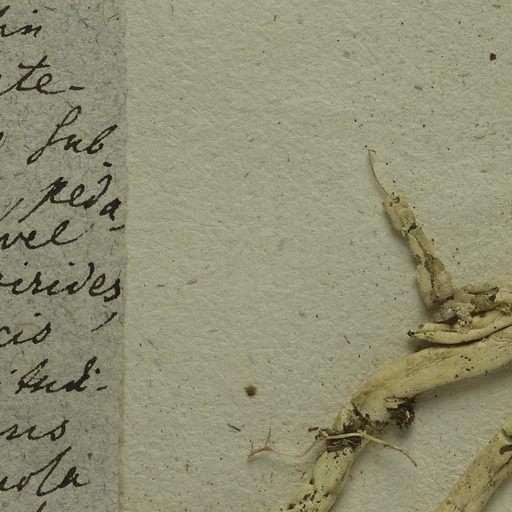 in
te-
sub
peda-
vel
virides
cis
itudi-
ns
nosa